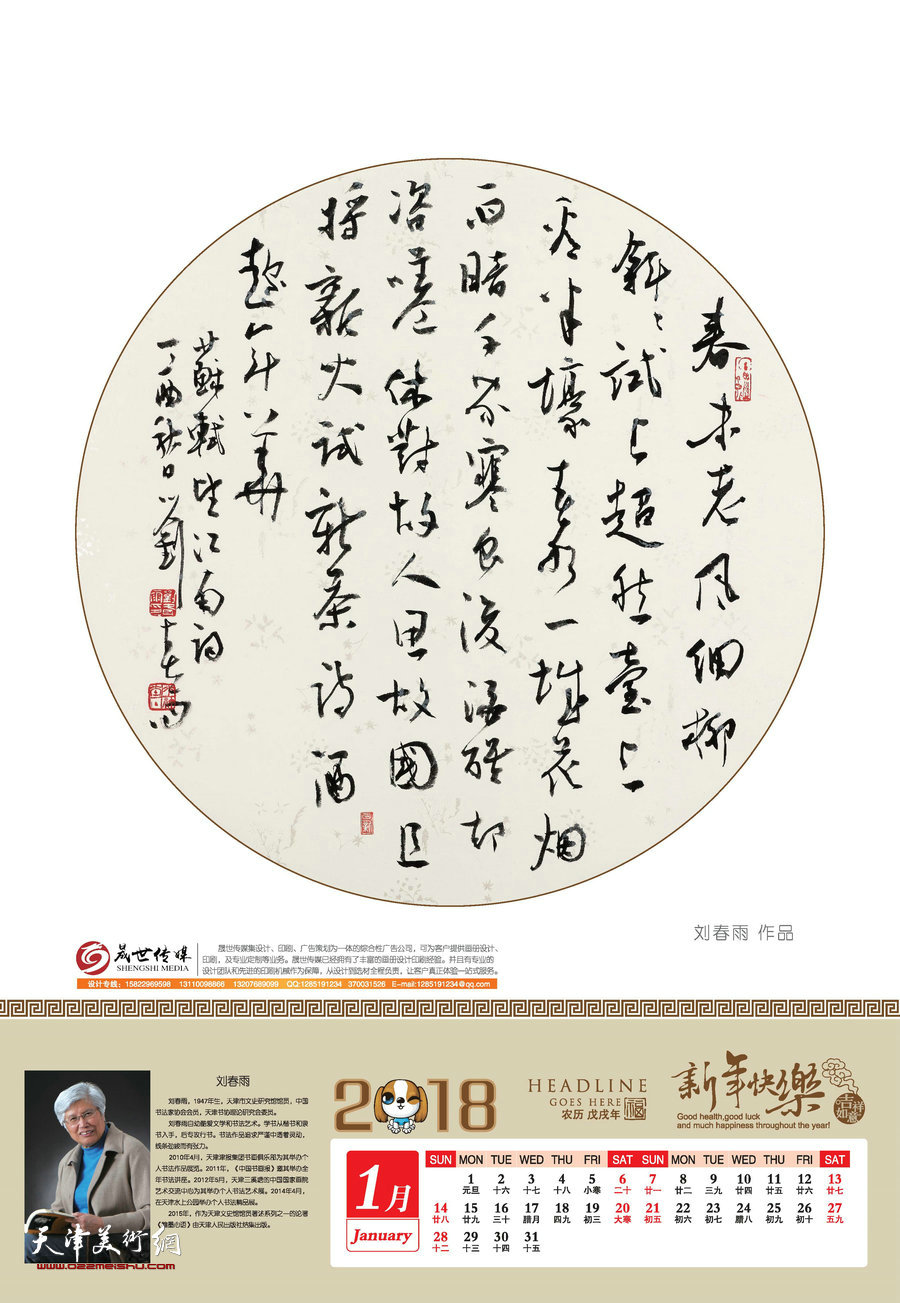 春未老风细柳
斜斜試上超然臺上
看半壕春水一城花烟
雨暗千家寒食後酒醒却
咨嗟休對故人思故國且
將新火試新茶詩酒
趁年華
蘇軾望江南词
丁酉秋日劉春雨
刘春雨 作品
晟世传媒
SHENGSHI MEDIA
晟世传媒集设计、印刷、广告策划为一体的综合性广告公司，可为客户提供画册设计、
印刷，及专业定制等业务。晟世传媒已经拥有了丰富的画册设计印刷经验。并且有专业的
设计团队和先进的印刷机械作为保障，从设计到选材全程负责，让客户真正体验一站式服务。
设计专线：15822969598 13110098868 13207689099 QQ:1285191234 370031526 E-mail:1285191234@qq.com
刘春雨
刘春雨，1947年生，天津市文史研究馆馆员，中国
书法家协会会员，天津书协理论研究会委员。
刘春雨自幼酷爱文学和书法艺术。学书从楷书和隶
书入手，后专攻行书。书法作品追求严谨中透着灵动，
线条劲峻而有张力。
2010年4月，天津津报集团书画俱乐部为其举办个
人书法作品展览。2011年，《中国书画报》邀其举办全
年书法讲座。2012年5月，天津三溪塘的中国国家画院
艺术交流中心为其举办个人书法艺术展。2014年4月，
在天津水上公园举办个人书法精品展。
2015年，作为天津文史馆馆员著述系列之一的论著
《翰墨心语》由天津人民出版社结集出版。
天津美術網
www.022meishu.com
2018
HEADLINE
GOES HERE
农历 戊戌年
福
新年快樂
吉祥如意
Good health,good luck
and much happiness throughout the year!
1月
January
SUN MON TUE WED THU FRI SAT SUN MON TUE WED THU FRI SAT
1 2 3 4 5 6 7 8 9 10 11 12 13
元旦 十六 十七 十八 小寒 二十 廿一 廿二 三九 廿四 廿五 廿六 廿七
14 15 16 17 18 19 20 21 22 23 24 25 26 27
廿八 廿九 三十 腊月 四九 初三 大寒 初五 初六 初七 腊八 初九 初十 五九
28 29 30 31
十二 十三 十四 十五